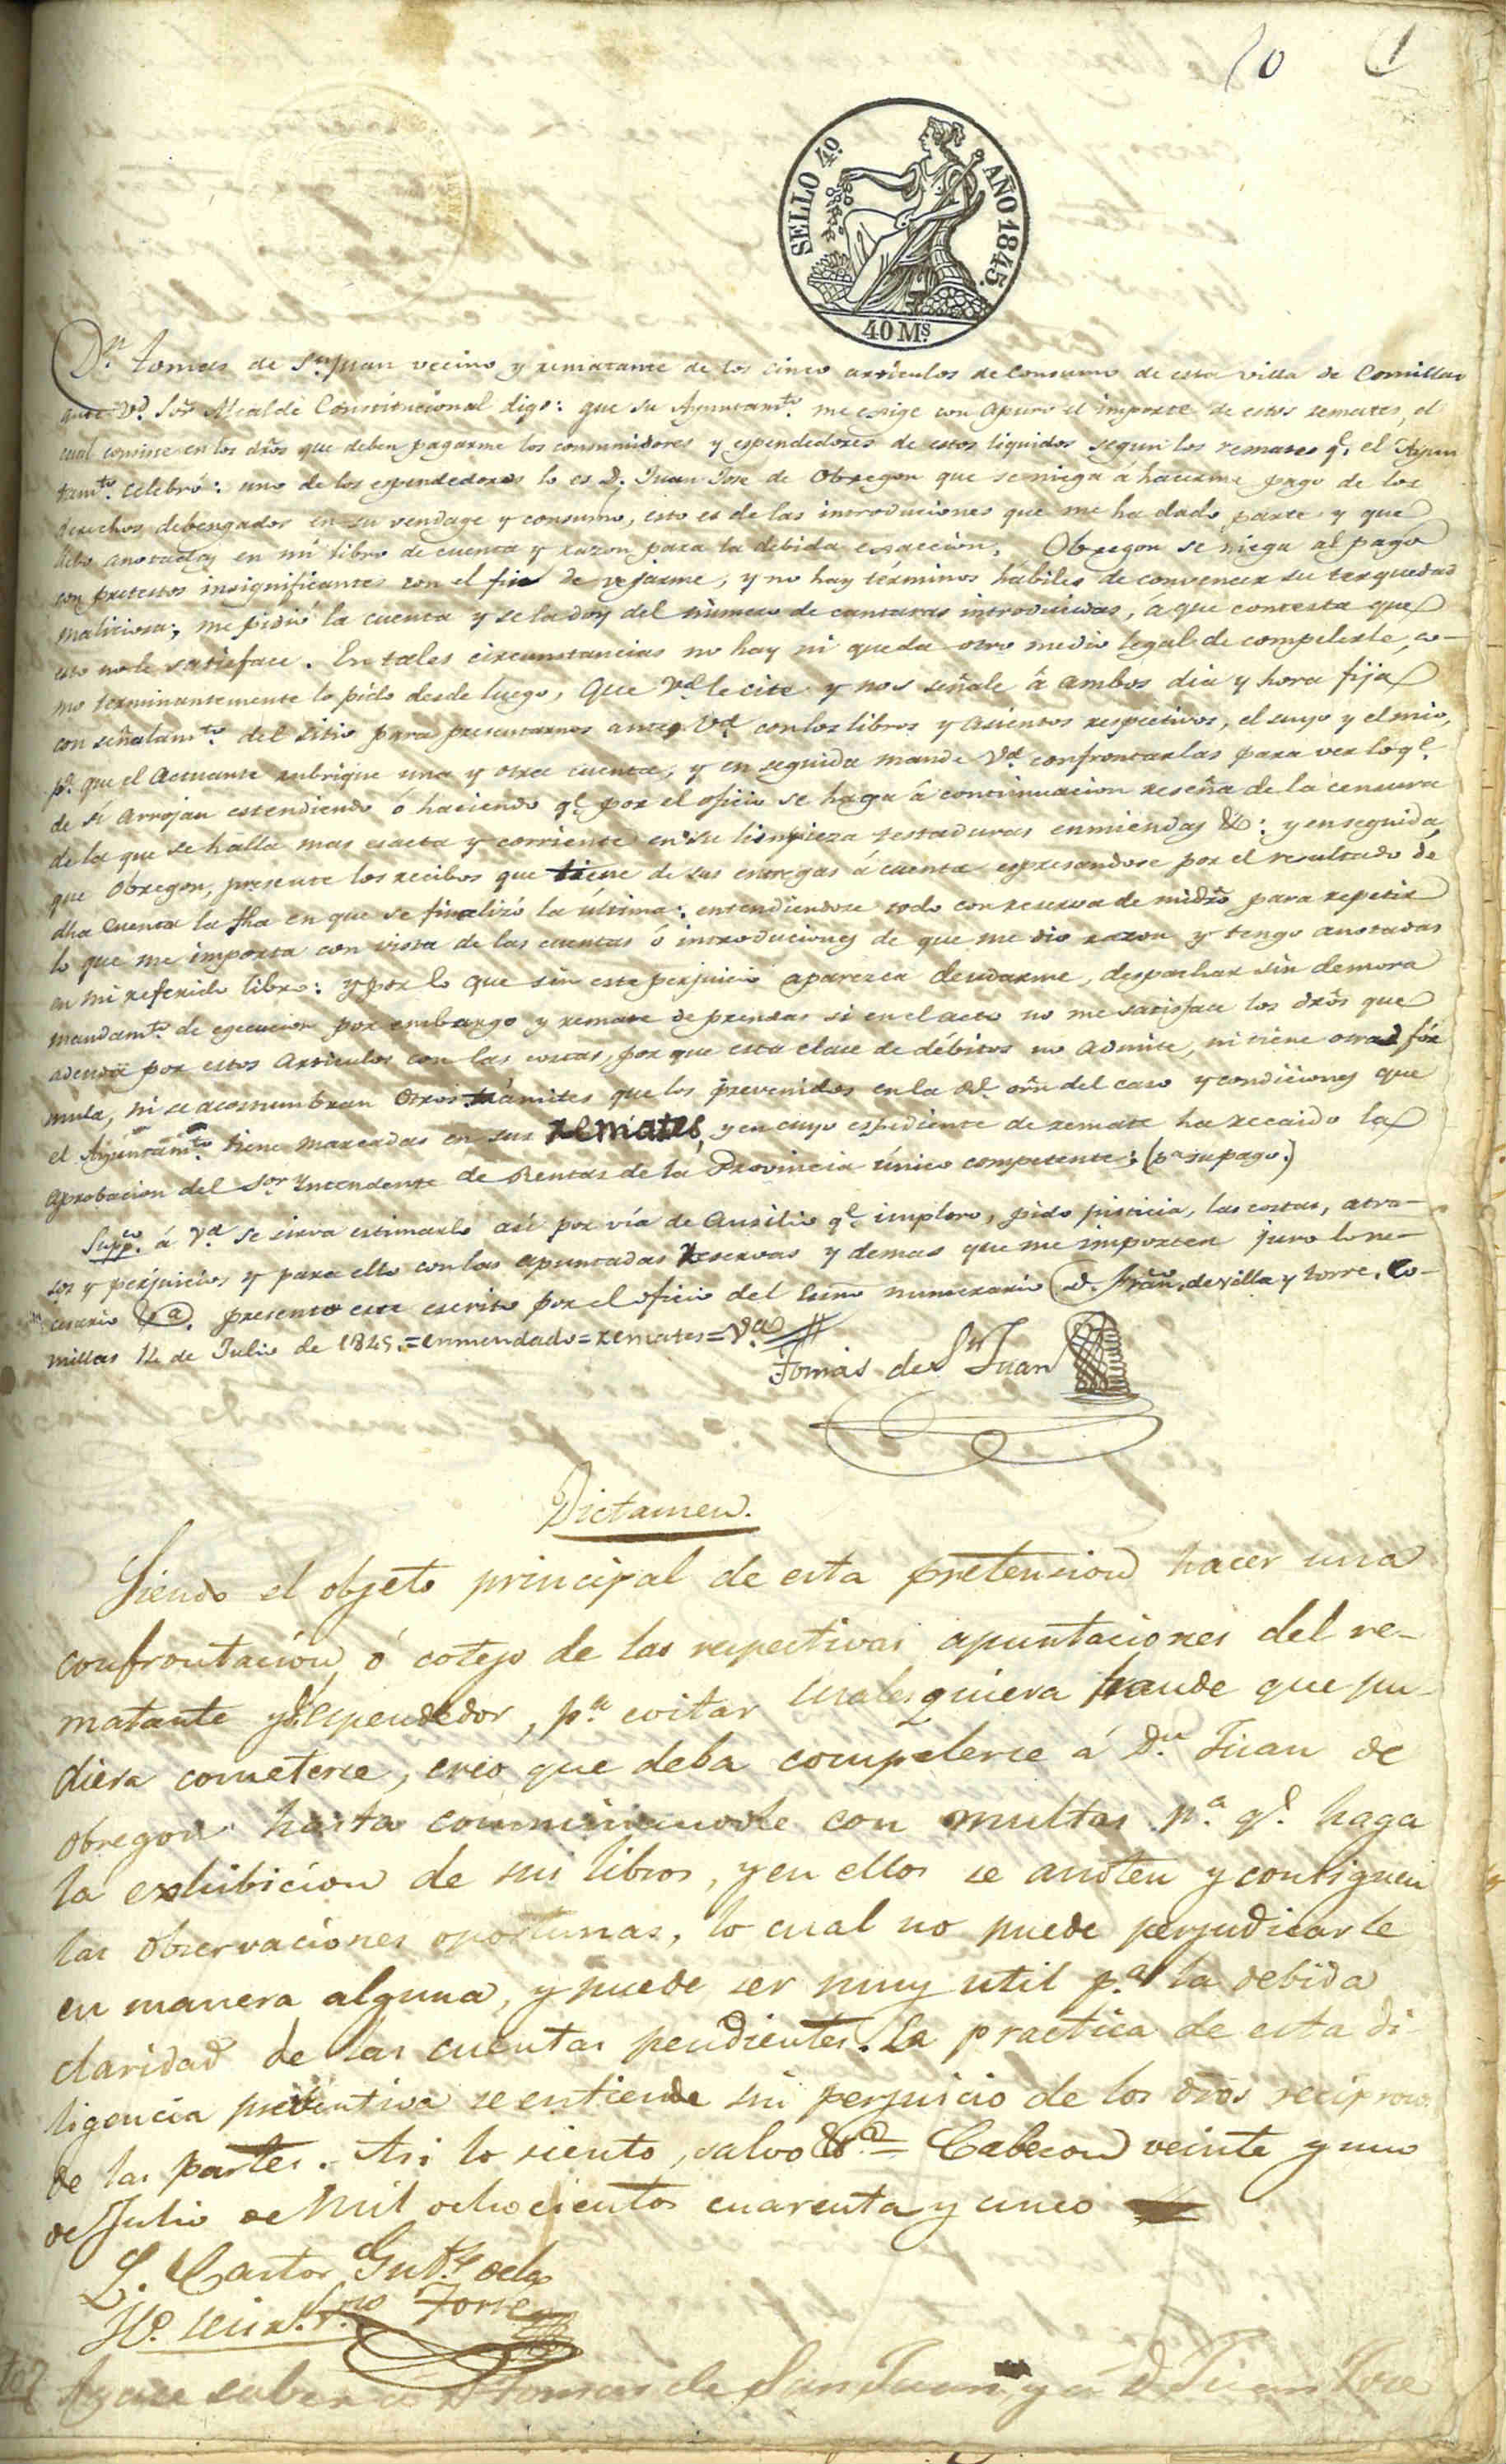 10 1
SELLO 4º. AÑO 1845.
40 Ms.
Dn. tomas de Sn. Juan vecino y rematante de los cinco articulos de Consumo de esta villa de Comillas
ante Vd. Sor. Alcalde Constitucional digo: que su Ayuntamto. me exige con apuro el importe de estos remates, el
cual consiste en los dros que deben pagarme los consumidores y espendedores de estos liquidos segun los remates q.e el Ayun
tamto. celebró: uno de los espendedores lo es D. Juan Jose de Obregon que se niega á hacerme pago de los
derechos debengados en su vendage y consumo, esto es de las introduciones que me ha dado parte y que
debo anotadas en mi libro de cuenta y razon para la debida esaccion. Obregon se niega al pago
con pretestos insignificantes con el fin de vejarme, y no hay términos hábiles de convencer su terquedad
maliciosa; me pidió la cuenta y se la doy del número de cantaras introducidas, á que contesta que
esto no le satisface. En tales circunstancias no hay ni queda otro medio legal de compelerle, co-
mo terminantemente lo pido desde luego, Que Vd. le cite y nos señale á ambos dia y hora fija
con señalamto. del sitio para presentarnos ante Vd. con los libros y asientos respectivos, el suyo y el mio,
pa. que el Actuante rubrique una y otra cuenta, y en seguida mande Vd. confrontarlas para ver lo qe.
de sí arrojan estendiendo ó haciendo qe. por el oficio se haga á continuacion reseña de la censura
de la que se halla mas esacta y corriente en su limpieza testaduras enmiendas &: y en seguida
que Obregon, presente los recibos que tiene de sus entregas á cuenta espresandose por el resultado de
dha cuenta la fha en que se finalizó la última: entendiendose todo con reserva de mi dro para repetir
lo que me importa con vista de las cuentas ó introduciones de que me dio razon y tengo anotadas
en mi referido libro: y por lo que sin este perjuicio aparezca deudarme, despachar sin demora
mandamto. de egecucion por embargo y remate de prendas si en el acto no me satisface los dros que
adeuda por estos articulos con las costas, por que esta clase de débitos no admite, ni tiene otra fór
mula, ni se acostumbran otros trámites que los prevenidos en la Rl. orn del caso y condiciones que
el Ayuntamto. tiene marcadas en sus remates, y en cuyo espediente de remate ha recaido la
aprobacion del Sor Intendente de Rentas de la Provincia único competente: (pa. su pago.)
Suppco. á Vd. se sirva estimarlo así por vía de Ausilio qe. imploro, pido justicia, las costas, atra-
sos y perjuicios y para ello con las apuntadas reservas y demas que me importen juro lo ne-
cesario &a. presento este escrito por el oficio del Esno numerario D. Franco. de villa y torre. Co-
millas 14 de Julio de 1845. = enmendado = remates = Va.
Tomás de Sn Juan
Dictamen.
Siendo el objeto principal de esta pretension hacer una
confrontacion ó cotejo de las respectivas apuntaciones del re-
matante y del espendedor, pa. evitar cualesquiera fraude que pu-
diera cometerse, creo que deba compelerse á Dn. Juan de
Obregon hasta conminandole con multas pa. qe. haga
la exhibicion de sus libros, y en ellos se anoten y consignen
las observaciones oportunas, lo cual no puede perjudicarle
en manera alguna, y puede ser muy util pa. la debida
claridad de las cuentas pendientes. La practica de esta di-
ligencia preventiva se entiende sin perjuicio de los dros reciprocos
de las partes. Asi lo siento, salvo &a = Cabezon veinte y uno
de Julio de Mil ochocientos cuarenta y cinco
L. Castor Gutz. de la
Torre
Hagase saber a Dn Tomas de San Juan y á D Juan Jose